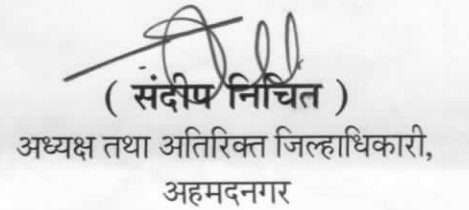 ( संदीप निचित )
अध्यक्ष तथा अतिरिक्त जिल्हाधिकारी,
अहमदनगर